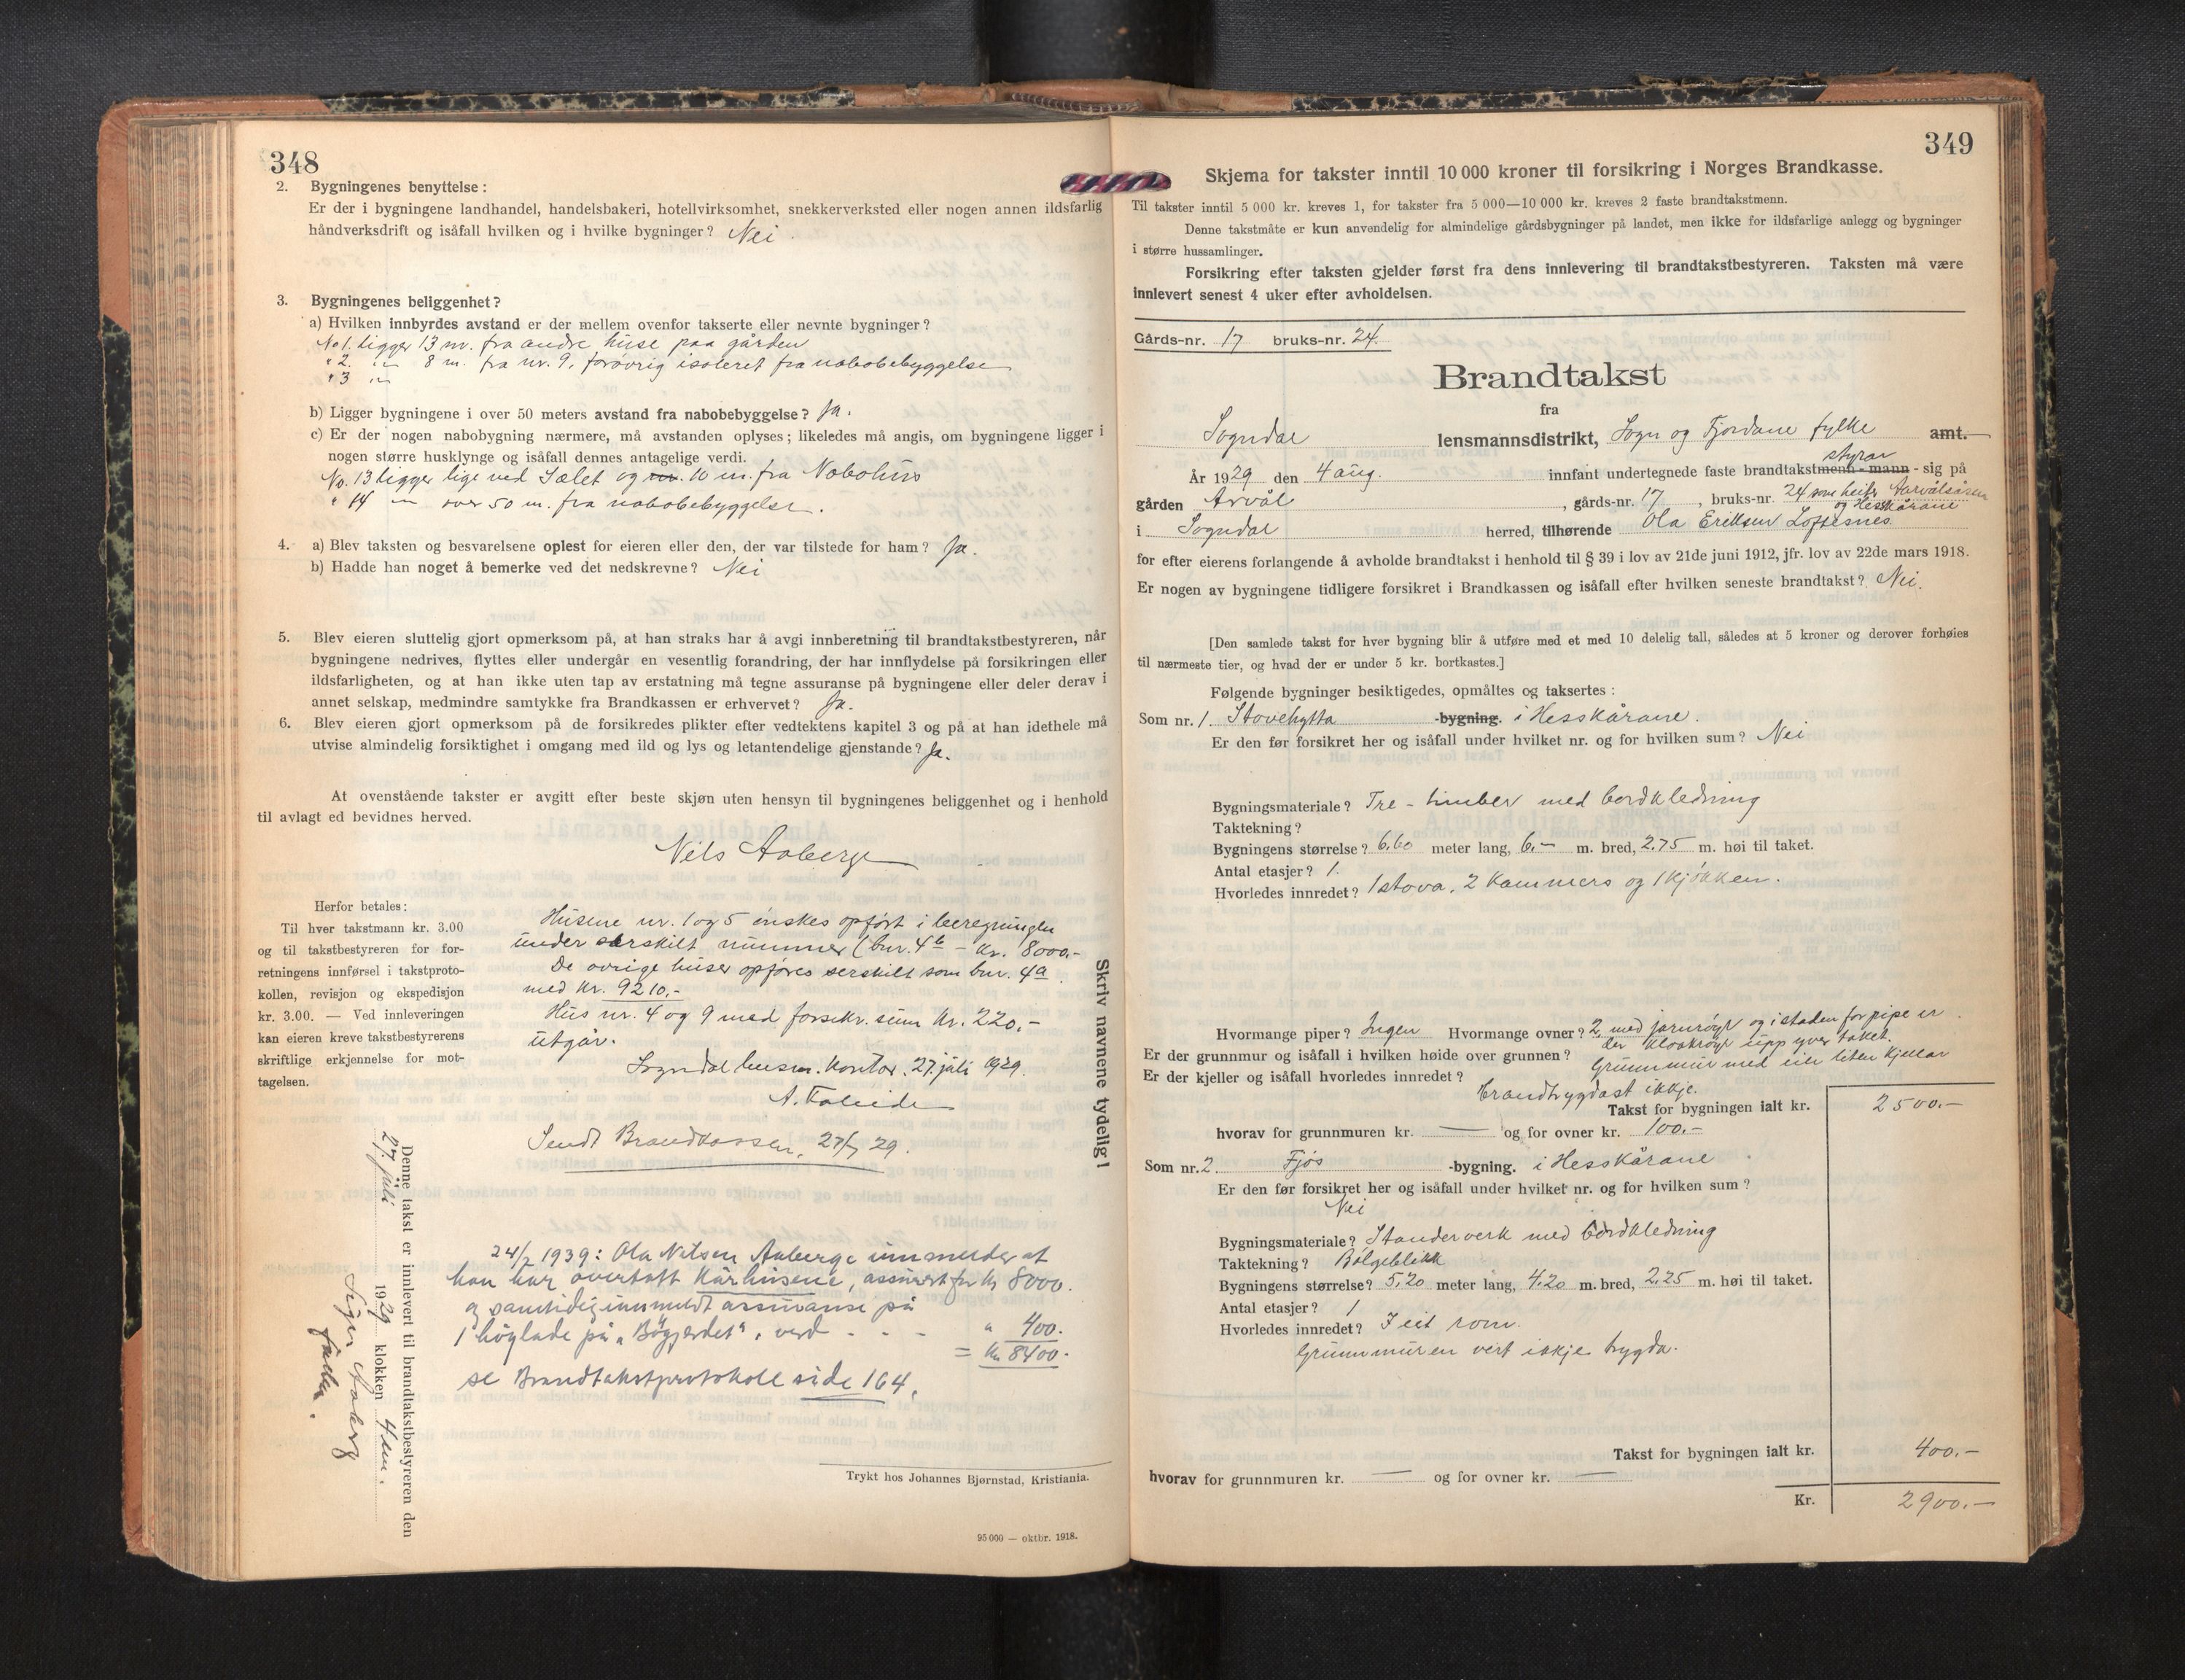 348
2. Bygningenes benyttelse:
Er der i bygningene landhandel, handelsbakeri, hotellvirksomhet, snekkerverksted eller nogen annen ildsfarlig
håndverksdrift og isåfall hvilken og i hvilke bygninger? Nei.
3. Bygningenes beliggenhet?
a) Hvilken innbyrdes avstand er der mellem ovenfor takserte eller nevnte bygninger?
No 1. ligger 13 m. fra andre huse paa gården
" 2. " 8 m. fra nr. 9, forøvrig isoleret fra nabobebyggelse
" 3 "
b) Ligger bygningene i over 50 meters avstand fra nabobebyggelse? Ja.
c) Er der nogen nabobygning nærmere, må avstanden oplyses; likeledes må angis, om bygningene ligger i
nogen større husklynge og isåfall dennes antagelige verdi.
No. 13 ligger lige ved Sælet og 10 m. fra Nabohus
" 14 — over 50 m. fra nabobebyggelse.
4. a) Blev taksten og besvarelsene oplest for eieren eller den, der var tilstede for ham? Ja.
b) Hadde han noget å bemerke ved det nedskrevne? Nei
5. Blev eieren sluttelig gjort opmerksom på, at han straks har å avgi innberetning til brandtakstbestyreren, når
bygningene nedrives, flyttes eller undergår en vesentlig forandring, der har innflydelse på forsikringen eller
ildsfarligheten, og at han ikke uten tap av erstatning må tegne assuranse på bygningene eller deler derav i
annet selskap, medmindre samtykke fra Brandkassen er erhvervet? Ja.
6. Blev eieren gjort opmerksom på de forsikredes plikter efter vedtektens kapitel 3 og på at han idethele må
utvise almindelig forsiktighet i omgang med ild og lys og letantendelige gjenstande? Ja.
At ovenstående takster er avgitt efter beste skjøn uten hensyn til bygningenes beliggenhet og i henhold
til avlagt ed bevidnes herved.
Nils Aaberge
Herfor betales:
Til hver takstmann kr. 3.00
og til takstbestyreren for for-
retningens innførsel i takstproto-
kollen, revisjon og ekspedisjon
kr. 3.00. — Ved innleveringen
kan eieren kreve takstbestyrerens
skriftlige erkjennelse for mot-
tagelsen.
Husene nr. 1 og 5 ønskes opført i beregningen
under særskilt nummer (bnr. 4b – kr. 8000,-
De øvrige huser opføres særskilt som bnr. 4a
med kr. 9210,-
Hus nr. 4 og 9 med forsikr. sum kr. 220,-
utgår.
Sogndal lensm. kontor, 27. juli 1929.
A. Faleide
Sendt Brandkassen, 27/7 29.
24/2 1939: Ola Nilsen Aaberge innmelder at
han har overtatt Kårhusene, assurert for kr 8000.
og samtidig innmeldt assuranse på
1 høylade på "Bøgjerdet", verd - - - " 400.
= kr 8400.
se Brandtakstprotokoll side 164.
Denne takst er innlevert til brandtakstbestyreren den
27. juli 1929 klokken 4 em.
Siger Aaberg
Skriv navnene tydelig!
Trykt hos Johannes Bjørnstad, Kristiania.
95 000 — oktbr. 1918.
349
Skjema for takster inntil 10 000 kroner til forsikring i Norges Brandkasse.
Til takster inntil 5 000 kr. kreves 1, for takster fra 5 000—10 000 kr. kreves 2 faste brandtakstmenn.
Denne takstmåte er kun anvendelig for almindelige gårdsbygninger på landet, men ikke for ildsfarlige anlegg og bygninger
i større hussamlinger.
Forsikring efter taksten gjelder først fra dens innlevering til brandtakstbestyreren. Taksten må være
innlevert senest 4 uker efter avholdelsen.
Gårds-nr. 17 bruks-nr. 24.
Brandtakst
fra
Sogndal lensmannsdistrikt, Sogn og Fjordane fylke amt.
År 1929 den 4 aug. innfant undertegnede faste brandtakstmenn - mann - styrar sig på
gården Arvål, gårds-nr. 17, bruks-nr. 24 som heiter Aarvålsåsen
og Hesskårane
i Sogndal herred, tilhørende Ola Eriksen Loftesnes.
for efter eierens forlangende å avholde brandtakst i henhold til § 39 i lov av 21de juni 1912, jfr. lov av 22de mars 1918.
Er nogen av bygningene tidligere forsikret i Brandkassen og isåfall efter hvilken seneste brandtakst? Nei.
[Den samlede takst for hver bygning blir å utføre med et med 10 delelig tall, således at 5 kroner og derover forhøies
til nærmeste tier, og hvad der er under 5 kr. bortkastes.]
Følgende bygninger besiktigedes, opmåltes og taksertes:
Som nr. 1. Stovehytta -bygning. i Hesskårane.
Er den før forsikret her og isåfall under hvilket nr. og for hvilken sum? Nei
Bygningsmateriale? Tre - timber med bordkledning
Taktekning?
Bygningens størrelse? 6,60 meter lang, 6,- m. bred, 2,75 m. høi til taket.
Antal etasjer? 1.
Hvorledes innredet? 1 stova, 2 kammers og 1 kjøkken.
Hvormange piper? Ingen Hvormange ovner? 2, med jarnrøyr og i staden for pipe er
der kloakrøyr upp yver taket.
Er der grunnmur og isåfall i hvilken høide over grunnen? Grunnmur med ein liten kjellar
Er der kjeller og isåfall hvorledes innredet?
brandtrygdast ikkje.
Takst for bygningen ialt kr. 2500.-
hvorav for grunnmuren kr. — og for ovner kr. 100.-
Som nr. 2 Fjøs -bygning. i Hesskårane
Er den før forsikret her og isåfall under hvilket nr. og for hvilken sum?
Nei
Bygningsmateriale? Standerverk med bordkledning
Taktekning? Bølgeblikk
Bygningens størrelse? 5,20 meter lang, 4,20 m. bred, 2,25 m. høi til taket.
Antal etasjer? 1
Hvorledes innredet? I eit rom.
Grunnmuren vert ikkje trygda.
Takst for bygningen ialt kr. 400.-
hvorav for grunnmuren kr. — og for ovner kr. —
Kr. 2900.-